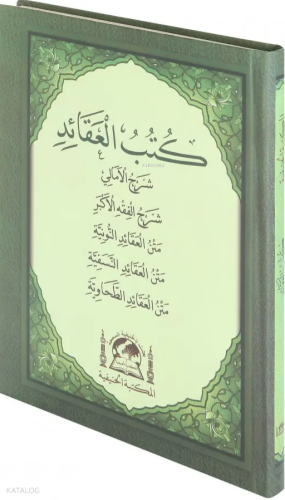 كُتُبُ الْعَقَائِدِ
شَرْحُ الْأَمَالِي
شَرْحُ الْفِقْهِ الْأَكْبَرِ
مَتْنُ الْعَقَائِدِ النُّونِيَّةِ
مَتْنُ الْعَقَائِدِ النَّسَفِيَّةِ
مَتْنُ الْعَقَائِدِ الطَّحَاوِيَّةِ
المكتبة الحنيفية
KATALOG